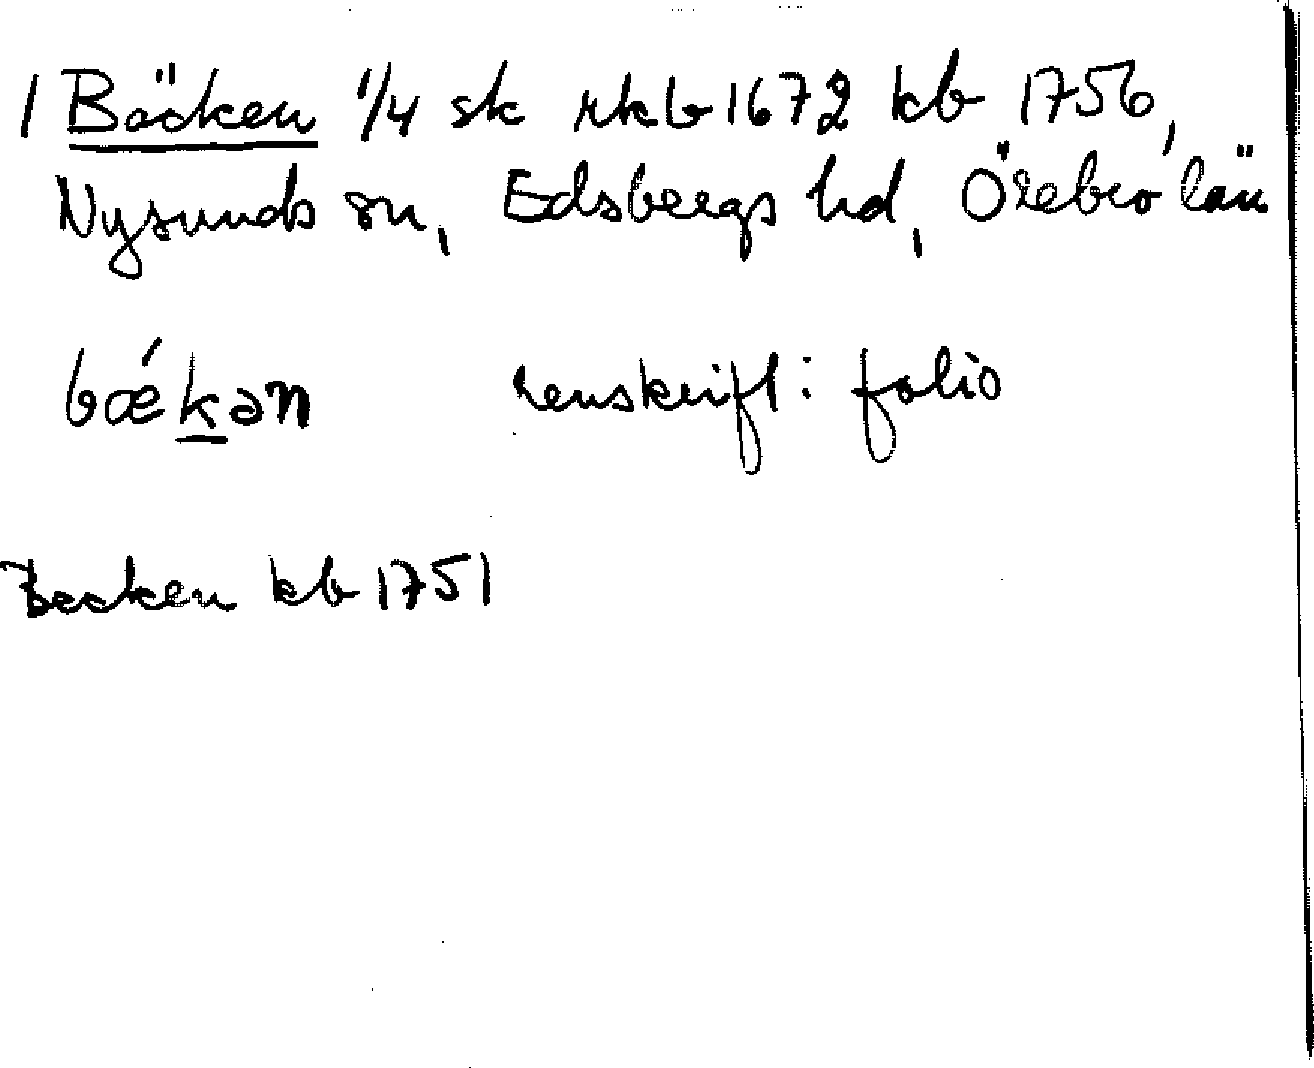 1 Bäcken 1/4 sk rkb 1672 kb 1756,
Nysunds sn, Edsbergs hd, Örebro län
bǽkən renskrift: folio
Becken kb 1751